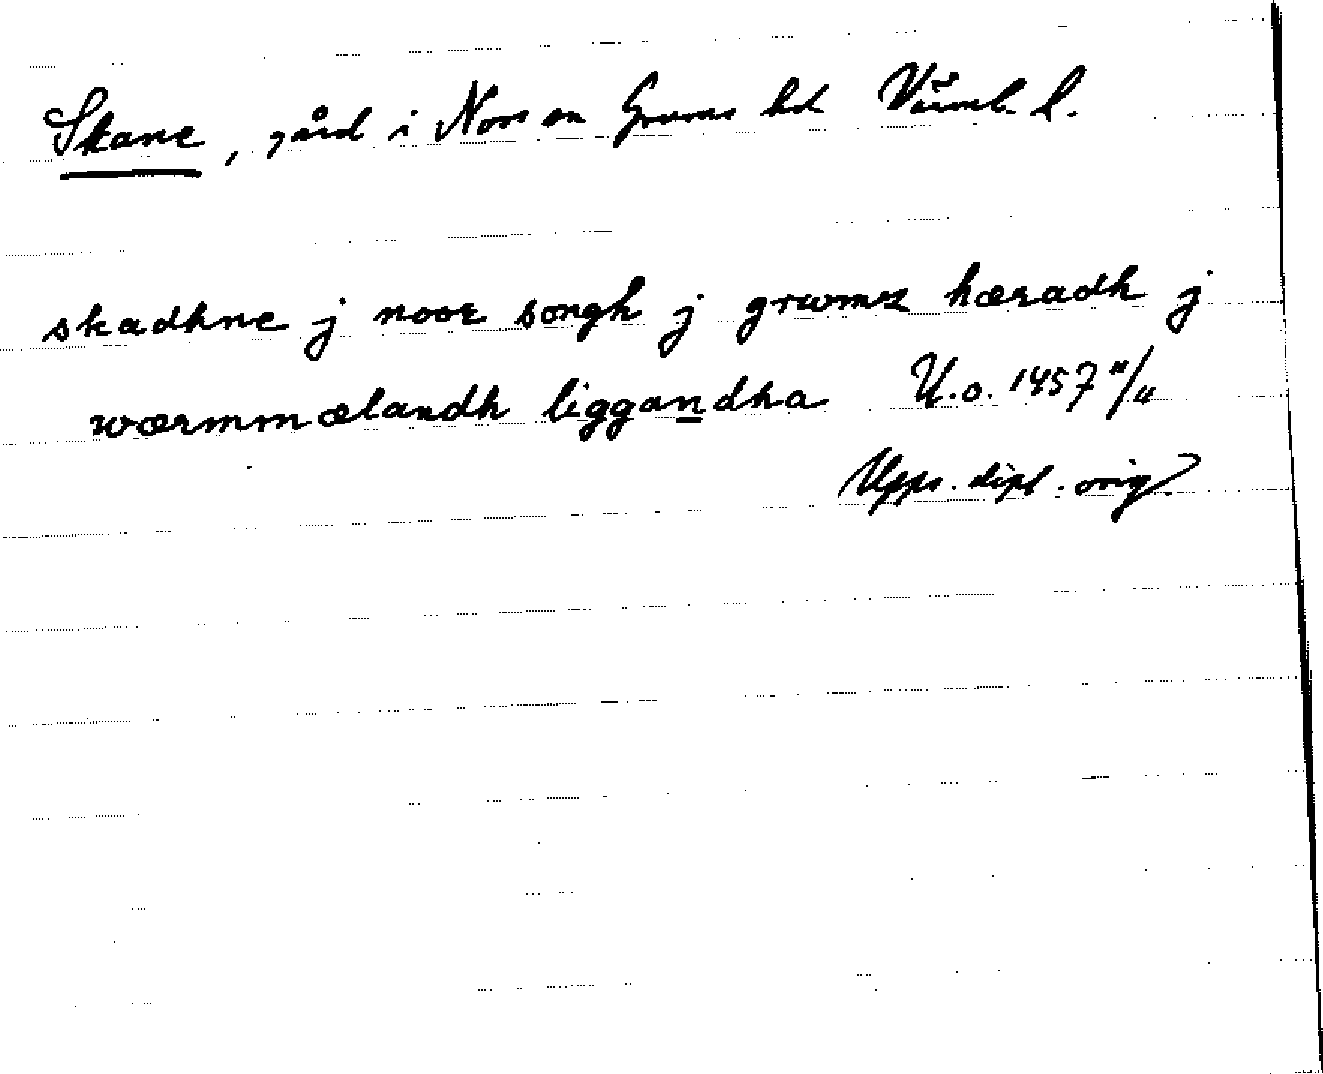 Skane, gård i Nors sn Grums hd Värml. l.
skadhne j noor songh j grwmsz hæradh j
wærmmælandh liggandha U.o. 1457 11/11
Upps. dipl. orig.